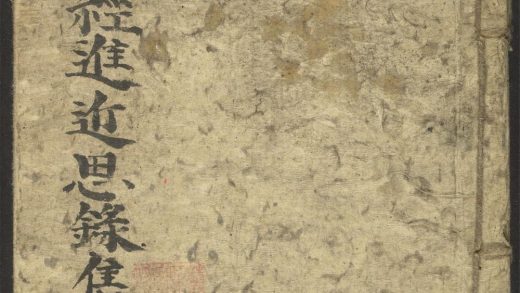 經進近思錄集